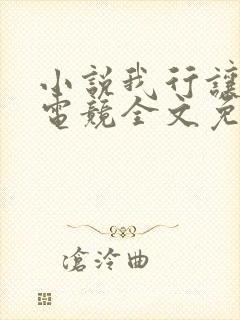 小説我行讓
電競全文免
滄泠曲